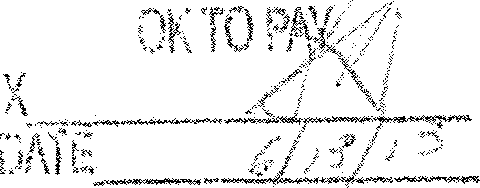 OK TO PAY
X
DATE 6/13/13